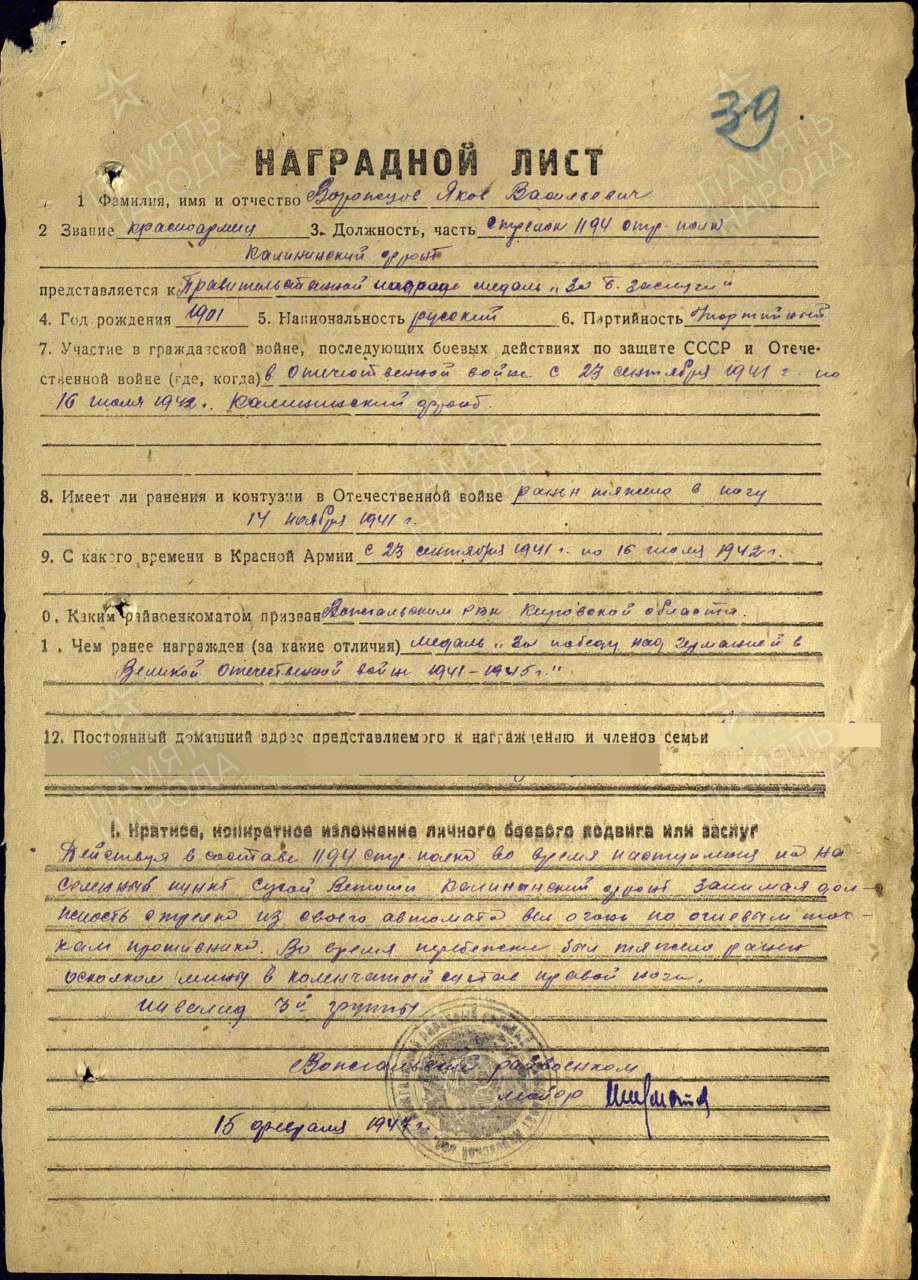 39
НАГРАДНОЙ ЛИСТ
1 Фамилия, имя и отчество Воронцов Яков Васильевич
2 Звание красноармеец 3. Должность, часть стрелок 1194 стр. полк
Калининский фронт
представляется к Правительственной награде медаль „За б. заслуги"
4. Год рождения 1901 5. Национальность русский 6. Партийность
7. Участие в гражданской войне, последующих боевых действиях по защите СССР и Отече-
ственной войне (где, когда) в Отечественной войне с 23 сентября 1941 г. по
16 июля 1942 г. Калининский фронт.
8. Имеет ли ранения и контузии в Отечественной войне ранен тяжело в ногу
14 ноября 1941 г.
9. С какого времени в Красной Армии с 23 сентября 1941 г. по 16 июля 1942 г.
0. Каким райвоенкоматом призван РВК Кировской области.
1 . Чем ранее награжден (за какие отличия) медаль „За победу над Германией в
Великой Отечественной войне 1941-1945 г."
12. Постоянный домашний адрес представляемого к награждению и членов семьи
I. Краткое, конкретное изложение личного боевого подвига или заслуг
Действуя в составе 1194 стр. полка во время наступления на на-
селенный пункт Сухой Калининский фронт занимая дол-
жность стрелка из своего автомата вел огонь по огневым точ-
кам противника. Во время перебежки был тяжело ранен
осколком мины в коленчатый сустав правой ноги.
инвалид 3й группы
райвоенком
майор
15 февраля 1947 г.
ПАМЯТЬ НАРОДА